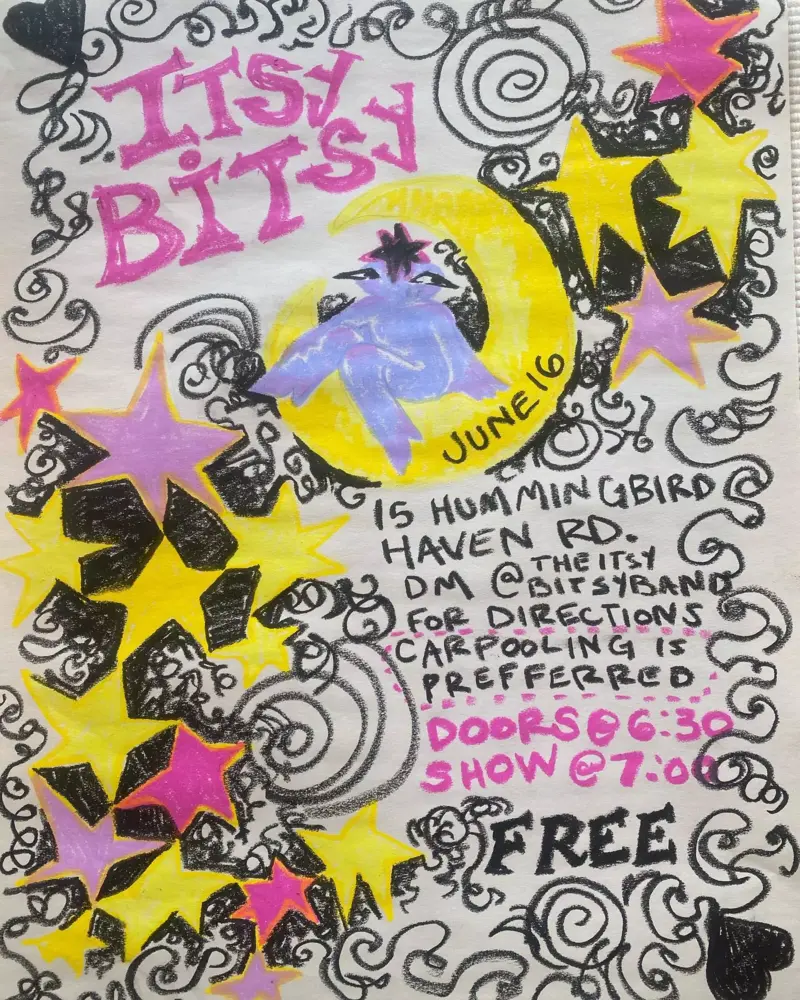 ITSY
BITSY
JUNE 16
15 HUMMINGBIRD
HAVEN RD.
DM @THE ITSY
BITSYBAND
FOR DIRECTIONS
CARPOOLING IS
PREFFERRED
DOORS@6:30
SHOW@7:00
FREE